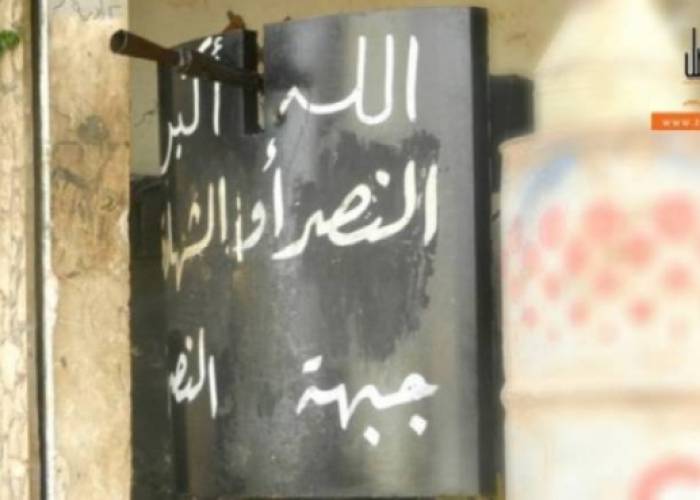 الله أكبر
النصر أو الشها
جبهة النصر